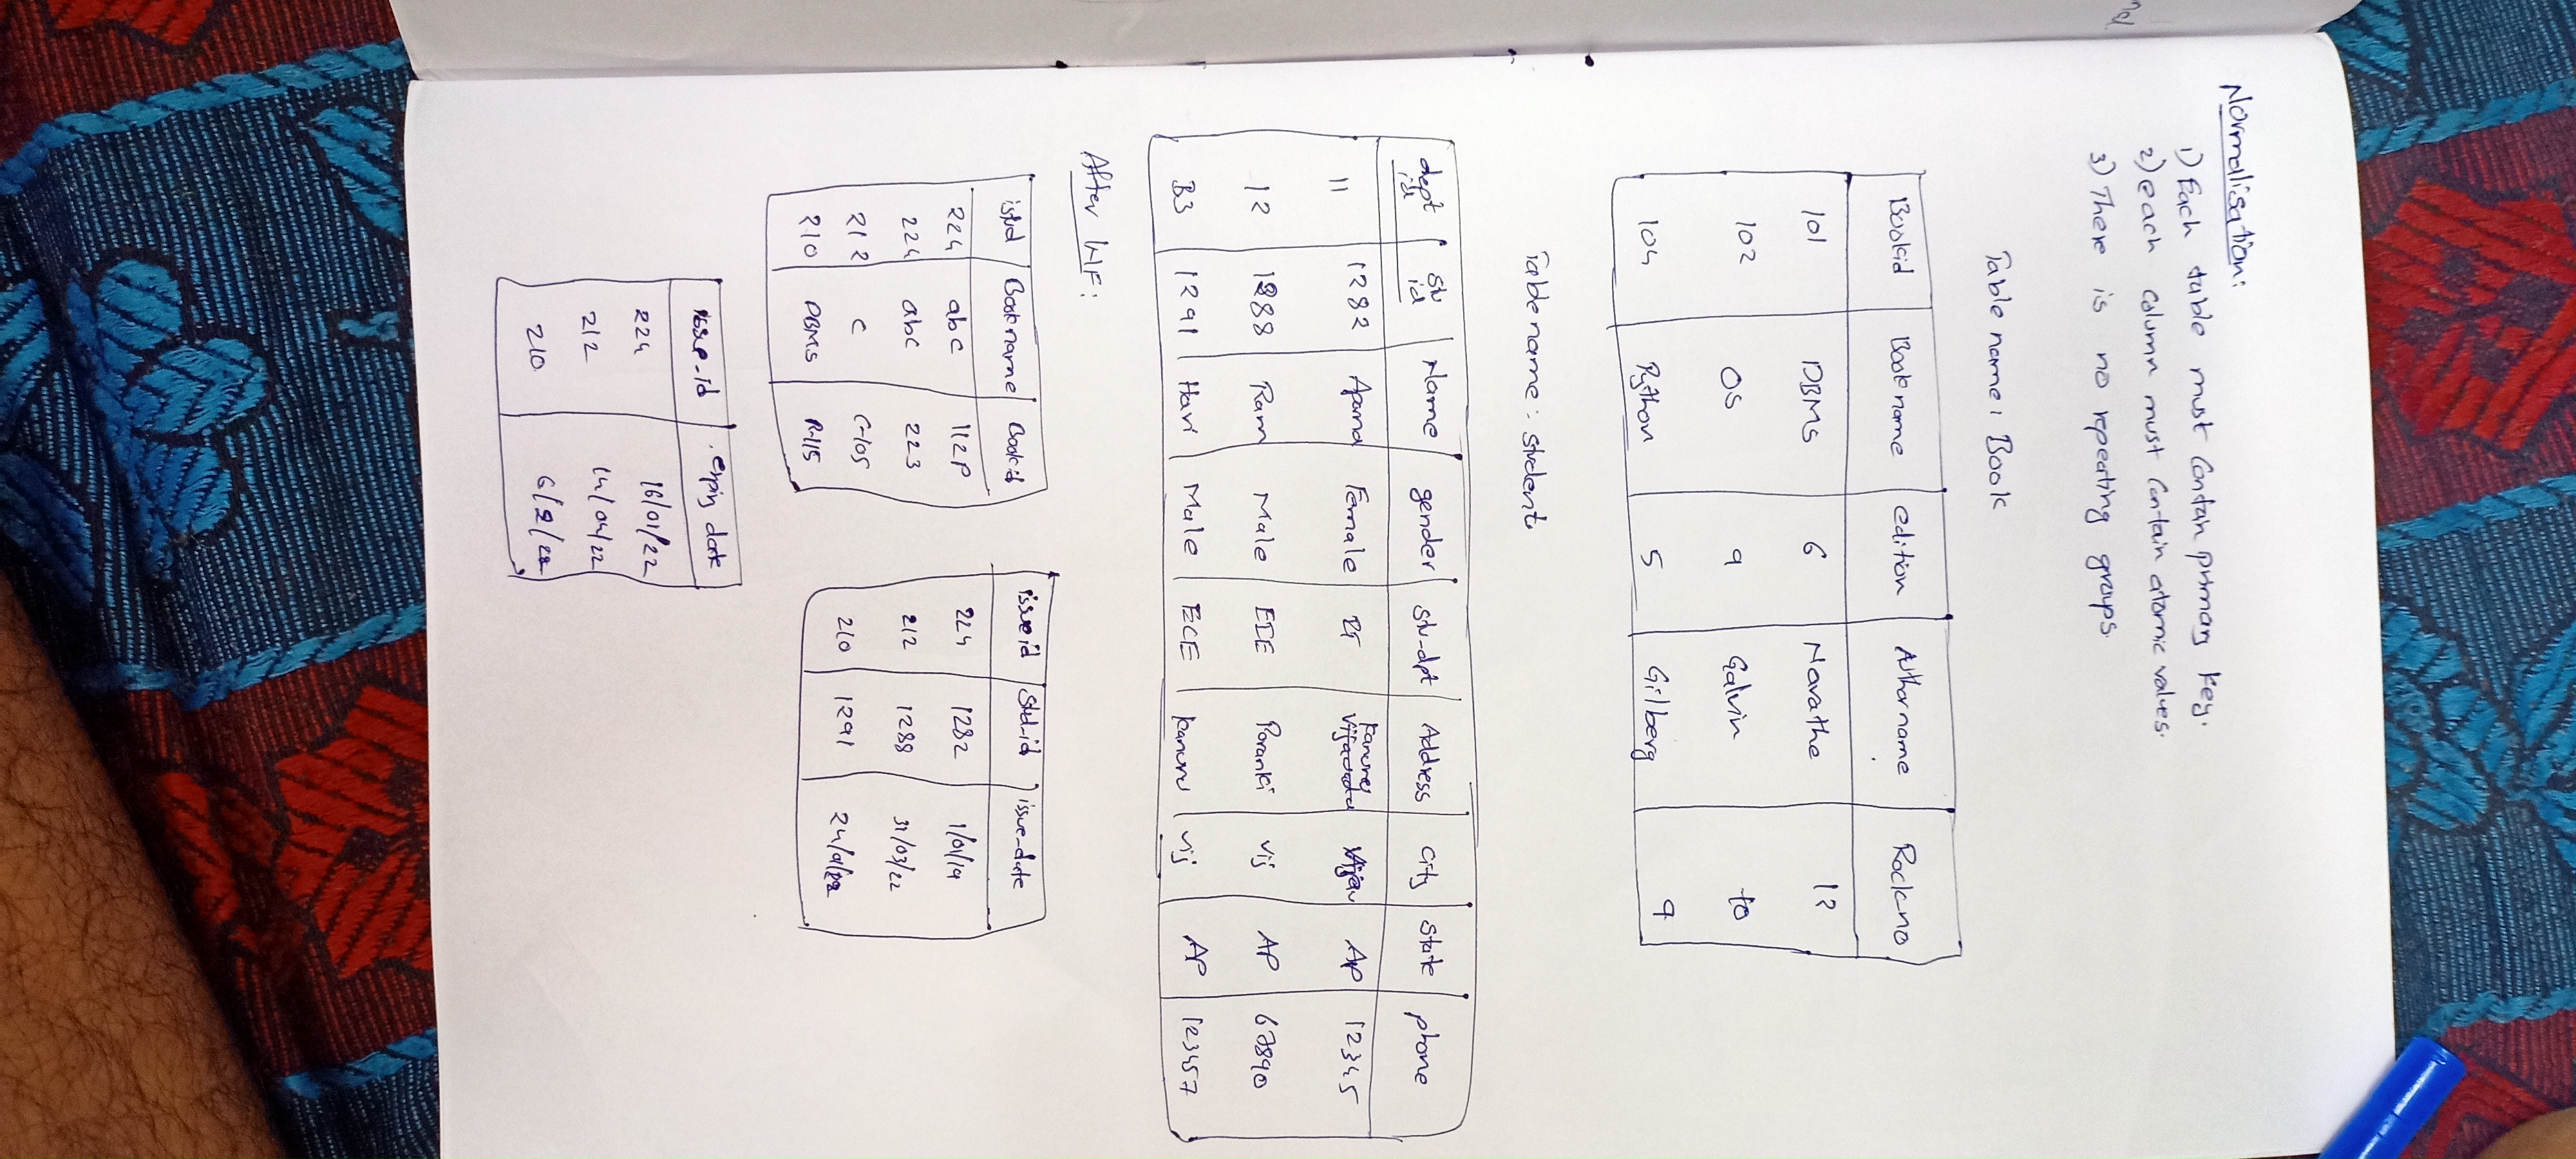 Normalisation:
1) Each table must contain primary key.
2) each column must contain atomic values.
3) There is no repeating groups.
Table name: Book
Bookid Book name edition Author name Rock-no
101 DBMS 6 Navathe 12
102 OS 9 Galvin 10
104 Python 5 Gilberg 9
Table name: student
dept id stu id Name gender stu-dpt Address City State phone
11 1282 Aparna Female Kanuru AP 12345
12 1288 Ram Male ECE Poranki vij AP 67890
B3 1291 Hari Male ECE kanuru vij AP 123457
After 1NF:
Book name Book id
224 abc 112P
224 abc 223
212 C C-105
210 DBMS R-115
issue id Std-id issue-date
224 1282 1/01/19
212 1288 31/03/22
210 1291
issue-id expiry date
224 16/01/22
212 14/04/22
210 6/2/22